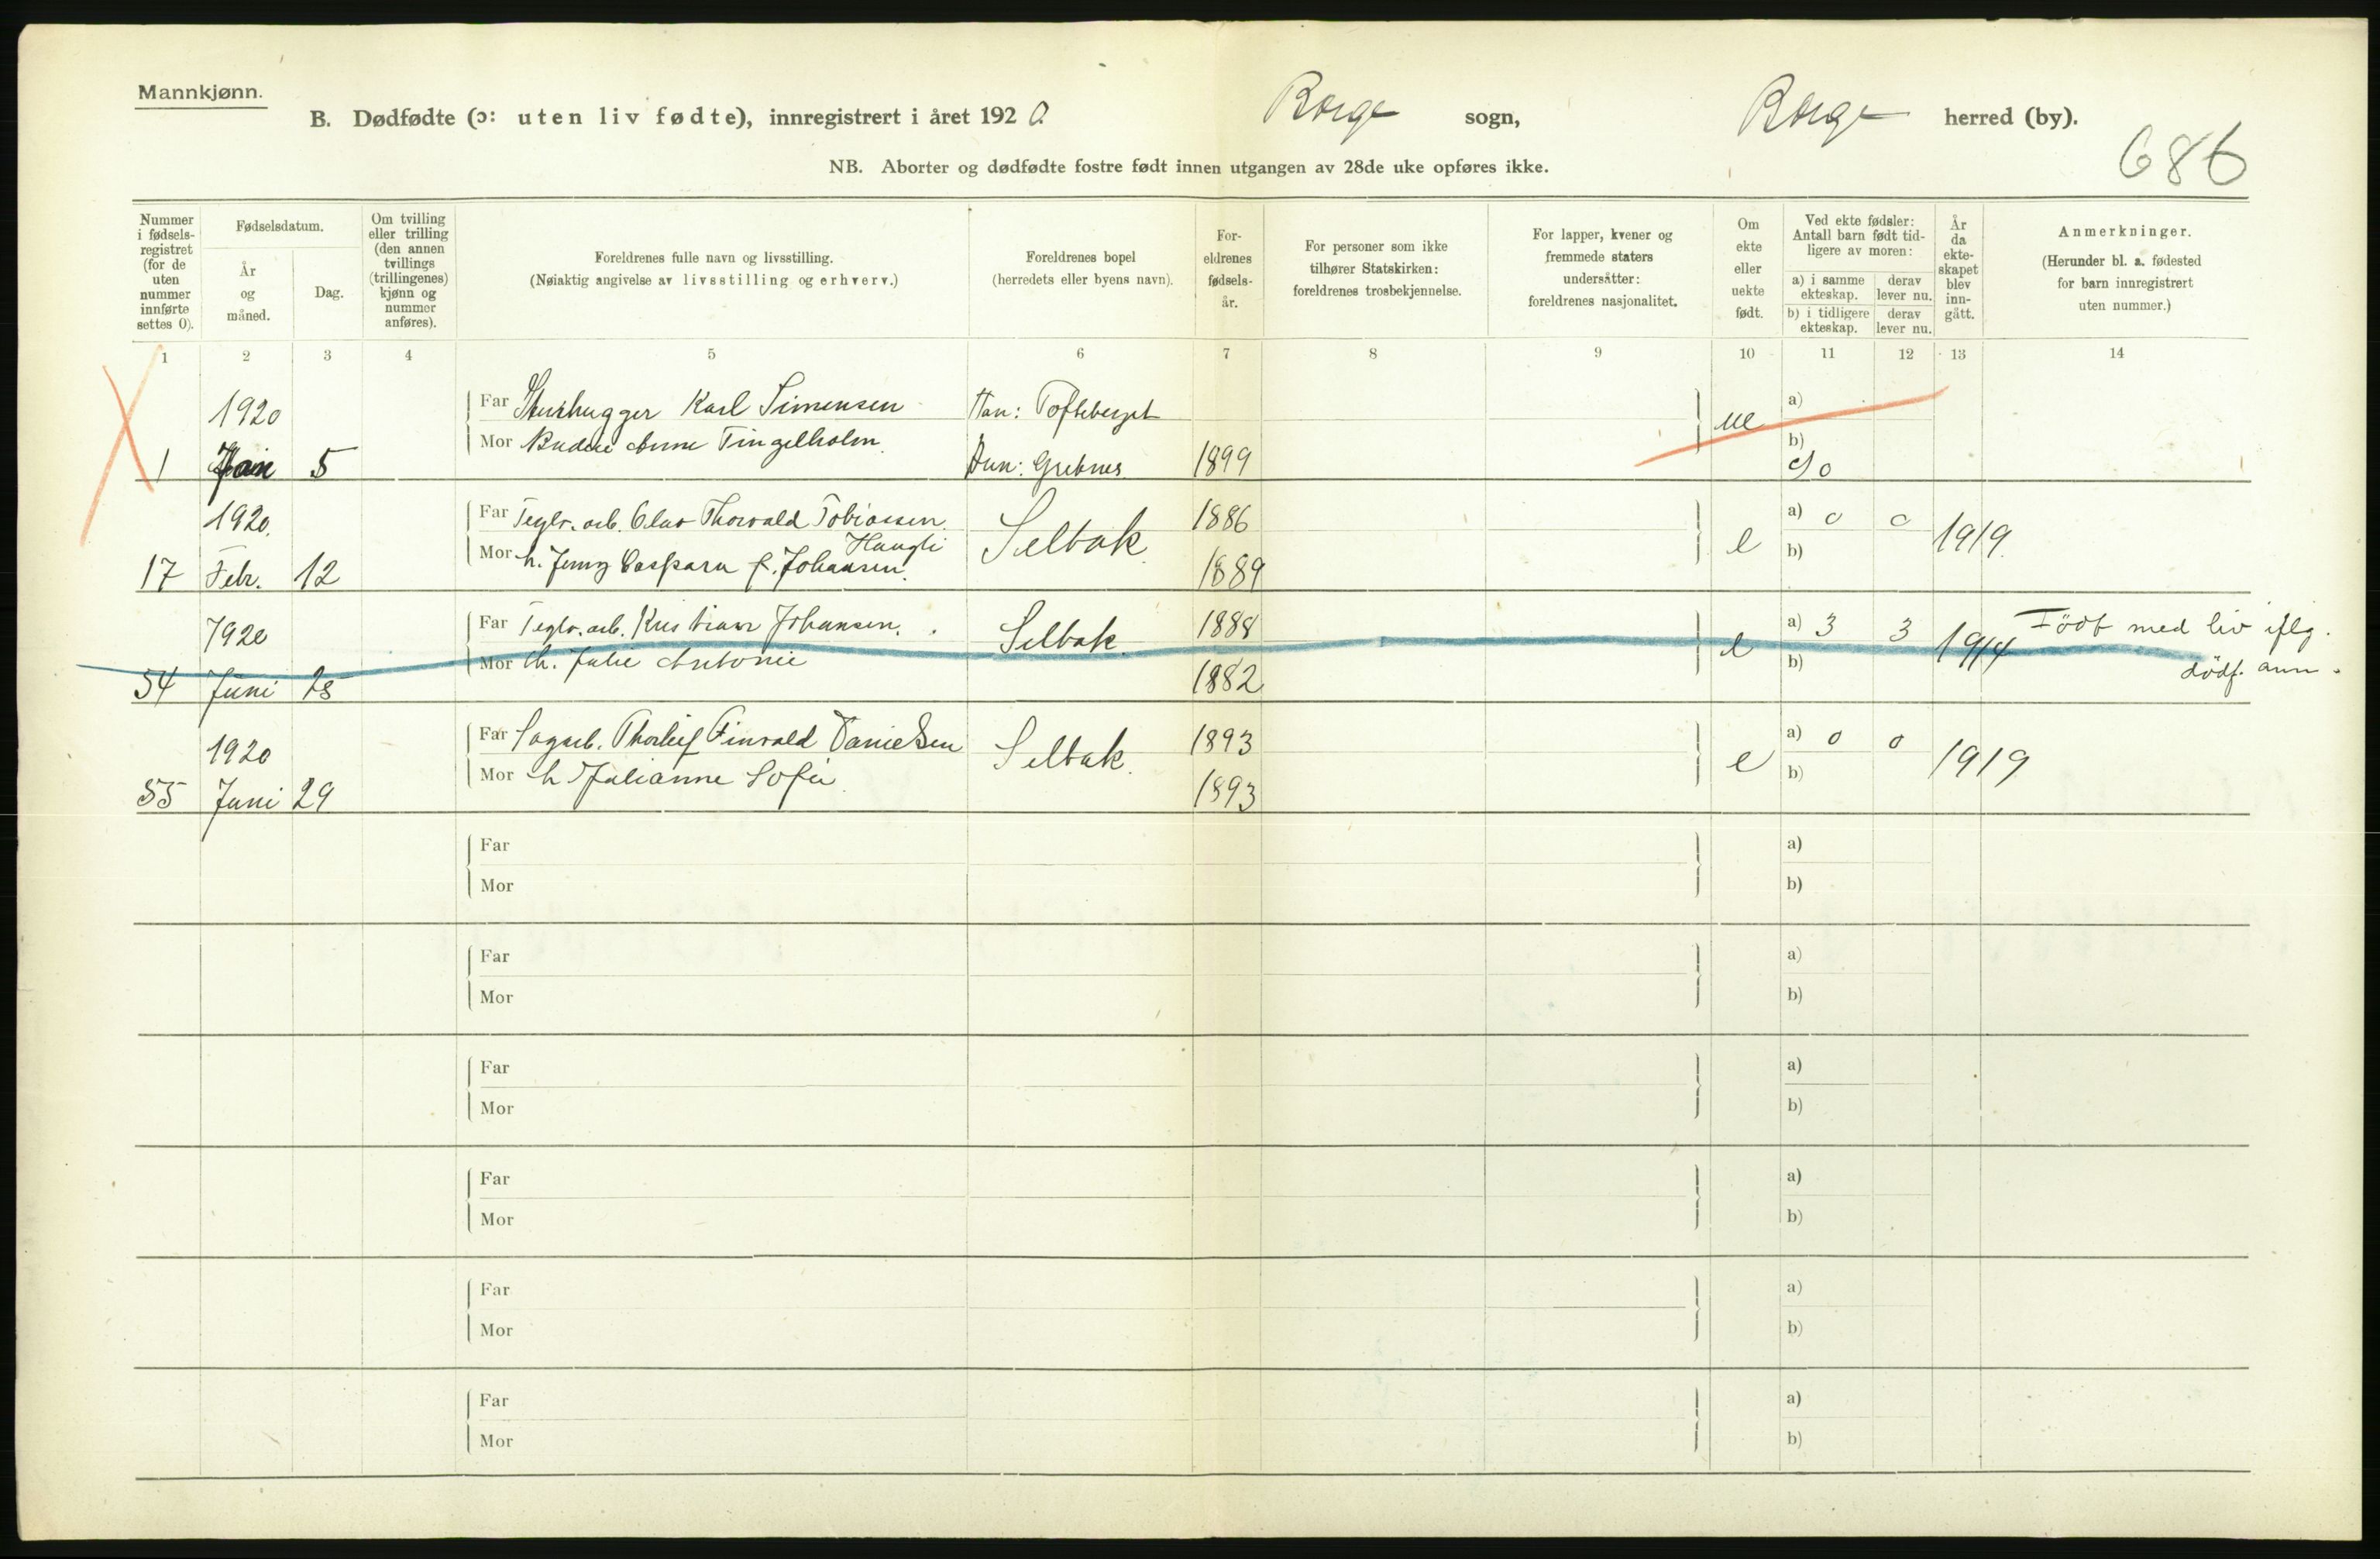 Mannkjønn.
B. Dødfødte (ɔ: uten liv fødte), innregistrert i året 1920. Borge sogn, Borge herred (by).
686
NB. Aborter og dødfødte fostre født innen utgangen av 28de uke opføres ikke.
Nummer i fødsels-registret (for de uten nummer innførte settes 0).
Fødselsdatum.
År og måned.
Dag.
Om tvilling eller trilling (den annen tvillings (trillingenes) kjønn og nummer anføres).
Foreldrenes fulle navn og livsstilling.
(Nøiaktig angivelse av livsstilling og erhverv.)
Foreldrenes bopel
(herredets eller byens navn).
For-eldrenes fødsels-år.
For personer som ikke tilhører Statskirken: foreldrenes trosbekjennelse.
For lapper, kvener og fremmede staters undersåtter: foreldrenes nasjonalitet.
Om ekte eller uekte født.
Ved ekte fødsler: Antall barn født tid-ligere av moren:
a) i samme ekteskap.
derav lever nu.
b) i tidligere ekteskap.
derav lever nu.
År da ekte-skapet blev inn-gått.
Anmerkninger.
(Herunder bl. a. fødested for barn innregistrert uten nummer.)
1 2 3 4 5 6 7 8 9 10 11 12 13 14
1920 Far Stenhugger Karl Simensen Han: Tofteberget ue a)
Mor Anne Tingelholm b)
1 Jan 5 Hun: 1899
1920. Far Teglv. arb. Olav Thorvald Tobiassen. Selbak. 1886 e a) 0 0 1919.
Haugli
Mor h. Jenny Caspara f. Johansen. b)
17 Febr. 12 1889
1920 Far Teglv. arb. Kristian Johansen. Selbak. 1888 e a) 3 3 1914 Född med liv iflg.
Mor h. Julie Antonie b) dödf. ann.
54 Juni 28 1882
1920 Far Sagarb. Thorleif Finvald Danielsen Selbak. 1893 e a) 0 0 1919
Mor h Julianne Sofie b)
55 Juni 29 1893
Far a)
Mor b)
Far a)
Mor b)
Far a)
Mor b)
Far a)
Mor b)
Far a)
Mor b)
Far a)
Mor b)